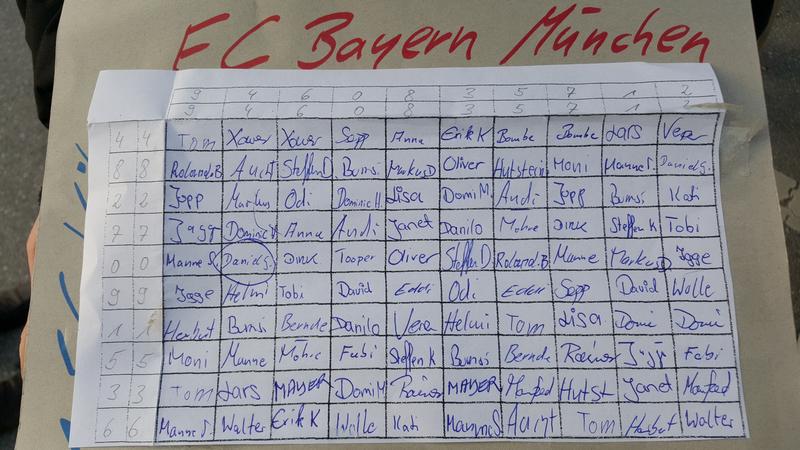 FC Bayern München
9 4 6 0 8 3 5 7 1 2
9 4 6 0 8 3 5 7 1 2
4 4 Tom Xaver Xaver Sepp Anna Erik K Bombe Bombe Lars Vera
8 8 Roland.B Aucht Steffen D. Bumsi Markus D Oliver Hutstein Moni Manne S. Daniel G.
2 2 Jopp Markus Odi Dominic H. Lisa Domi M. Andi Jopp Bumsi Kati
7 7 Dominic Anna Andi Janet Danilo Mohre Dirk Steffen K Tobi
0 0 Manne S. Daniel G. Dirk Tooper Oliver Steffen D Roland.B Manne Markus D Jogge
9 9 Jogge Helmi Tobi David Eddi Odi Eddi Sepp David Wolle
1 1 Herbert Bumsi Bernde Danilo Vera Helmi Tom Lisa Domi Domi
5 5 Moni Manne Mohre Fabi Steffen K Bumsi Bernde Rainer Fabi
3 3 Tom Lars MAYER Domi M Rainer MAYER Manfred Hutst Janet Manfred
6 6 Manne S. Walter Erik K Wolle Kati Manne S Aucht Tom Herbert Walter